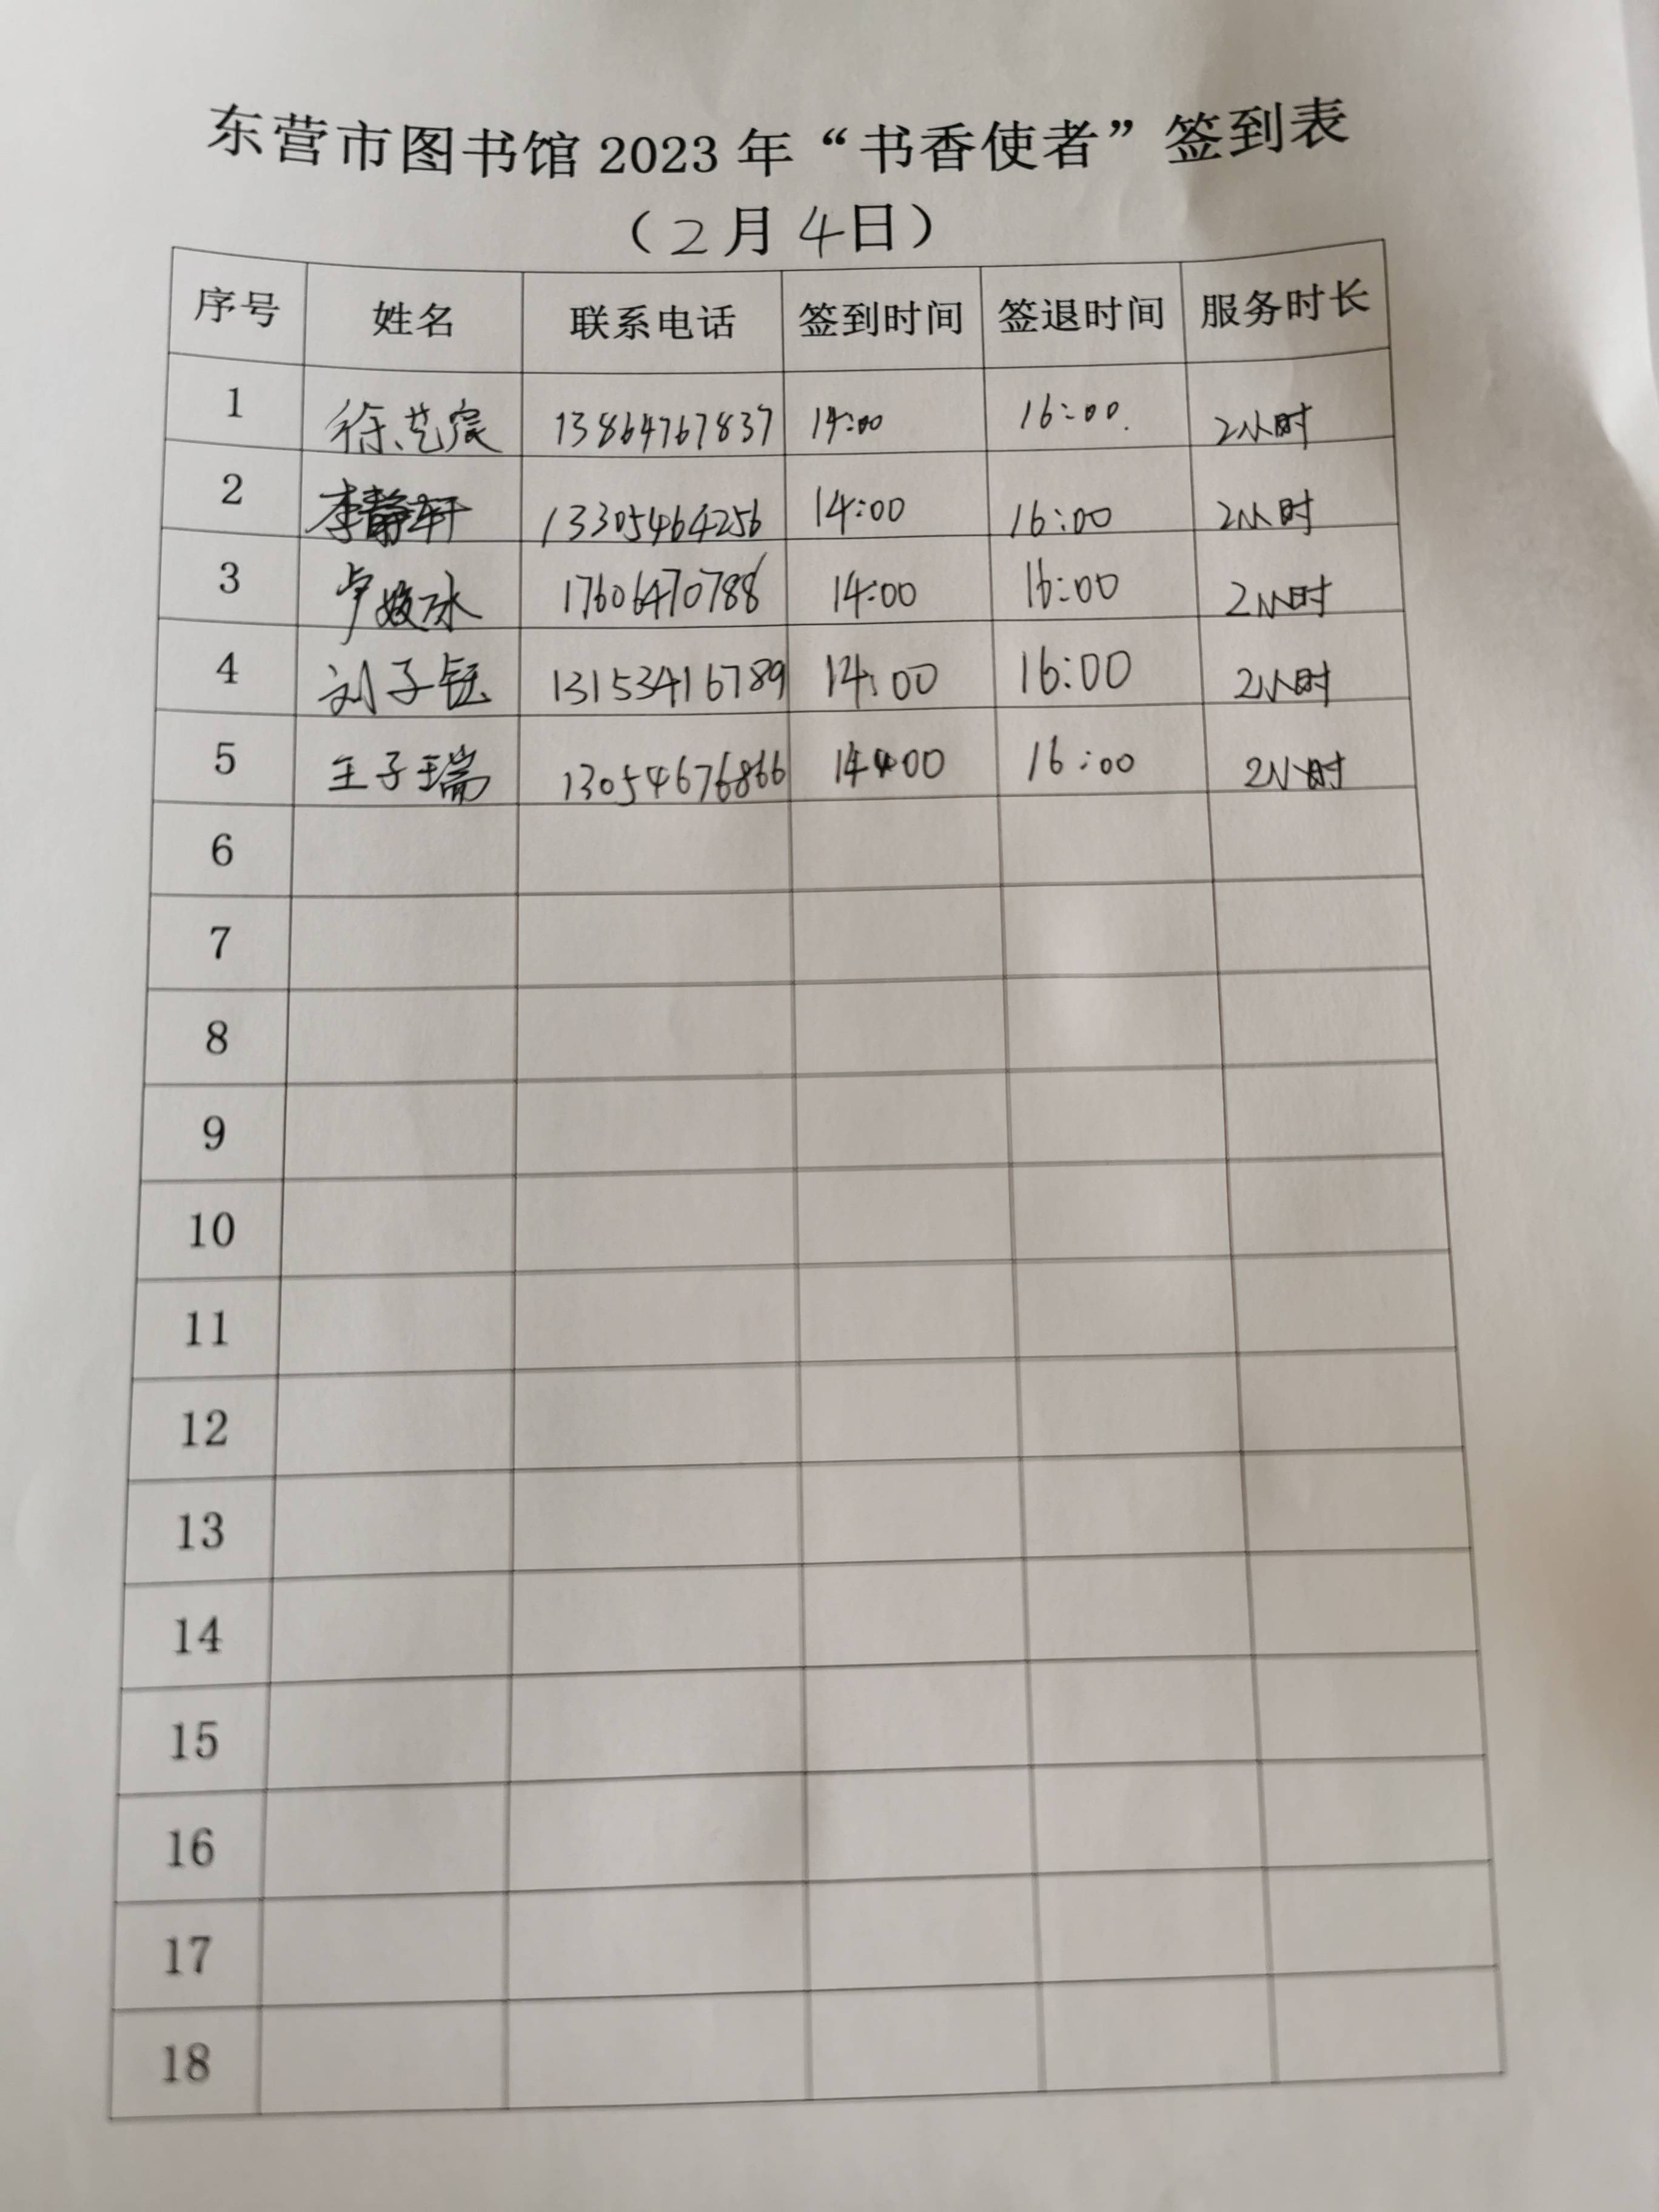 东营市图书馆 2023 年“书香使者”签到表
（2月4日）
序号 姓名 联系电话 签到时间 签退时间 服务时长
1 徐艺宸 13864767837 14:00 16:00. 2小时
2 李静轩 13305464256 14:00 16:00 2小时
3 卢 冰 17606470788 14:00 16:00 2小时
4 刘子钰 13153416789 14:00 16:00 2小时
5 王子瑞 13054676866 14:00 16:00 2小时
6
7
8
9
10
11
12
13
14
15
16
17
18